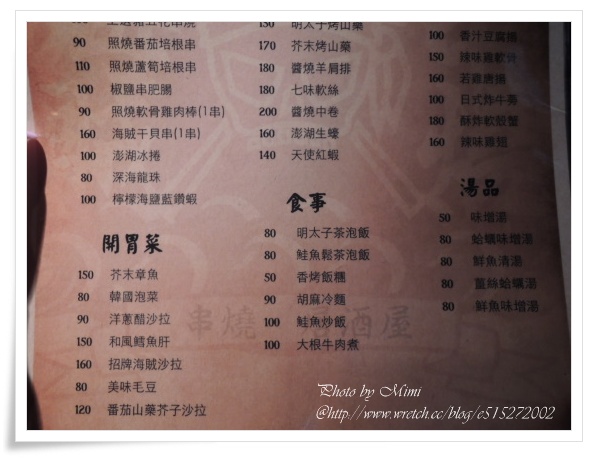 90 照燒番茄培根串
110 照燒蘆筍培根串
100 椒鹽串肥腸
90 照燒軟骨雞肉棒(1串)
160 海賊干貝串(1串)
100 澎湖冰捲
80 深海龍珠
100 檸檬海鹽藍鑽蝦
開胃菜
150 芥末章魚
80 韓國泡菜
90 洋蔥醋沙拉
150 和風鱈魚肝
160 招牌海賊沙拉
80 美味毛豆
120 番茄山藥芥子沙拉
150 明太子烤山藥
170 芥末烤山藥
180 醬燒羊肩排
180 七味軟絲
200 醬燒中卷
160 澎湖生蠔
140 天使紅蝦
食事
80 明太子茶泡飯
80 鮭魚鬆茶泡飯
50 香烤飯糰
90 胡麻冷麵
100 鮭魚炒飯
100 大根牛肉煮
100 香汁豆腐揚
150 辣味雞軟骨
160 若雞唐揚
100 日式炸牛蒡
180 酥炸軟殼蟹
160 辣味雞翅
湯品
50 味增湯
80 蛤蠣味增湯
80 鮮魚清湯
80 薑絲蛤蠣湯
80 鮮魚味增湯
串燒 居酒屋
Photo by Mimi
@http://www.wretch.cc/blog/e515272002